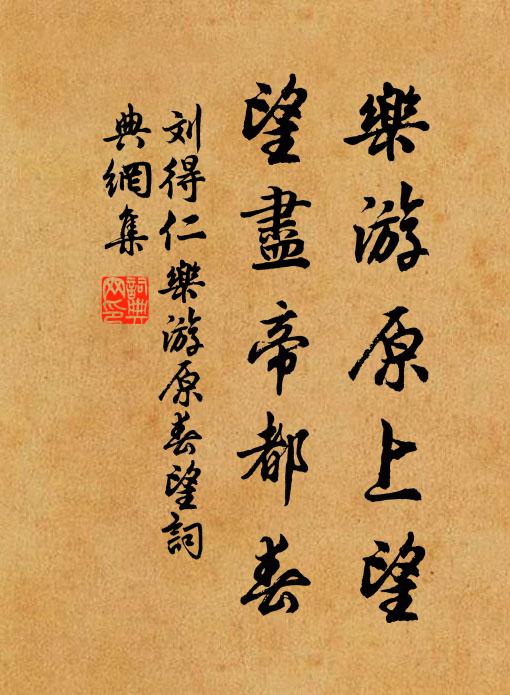 樂游原上望
望盡帝都春
刘得仁樂游原春望詞
典網集
詞典
网印